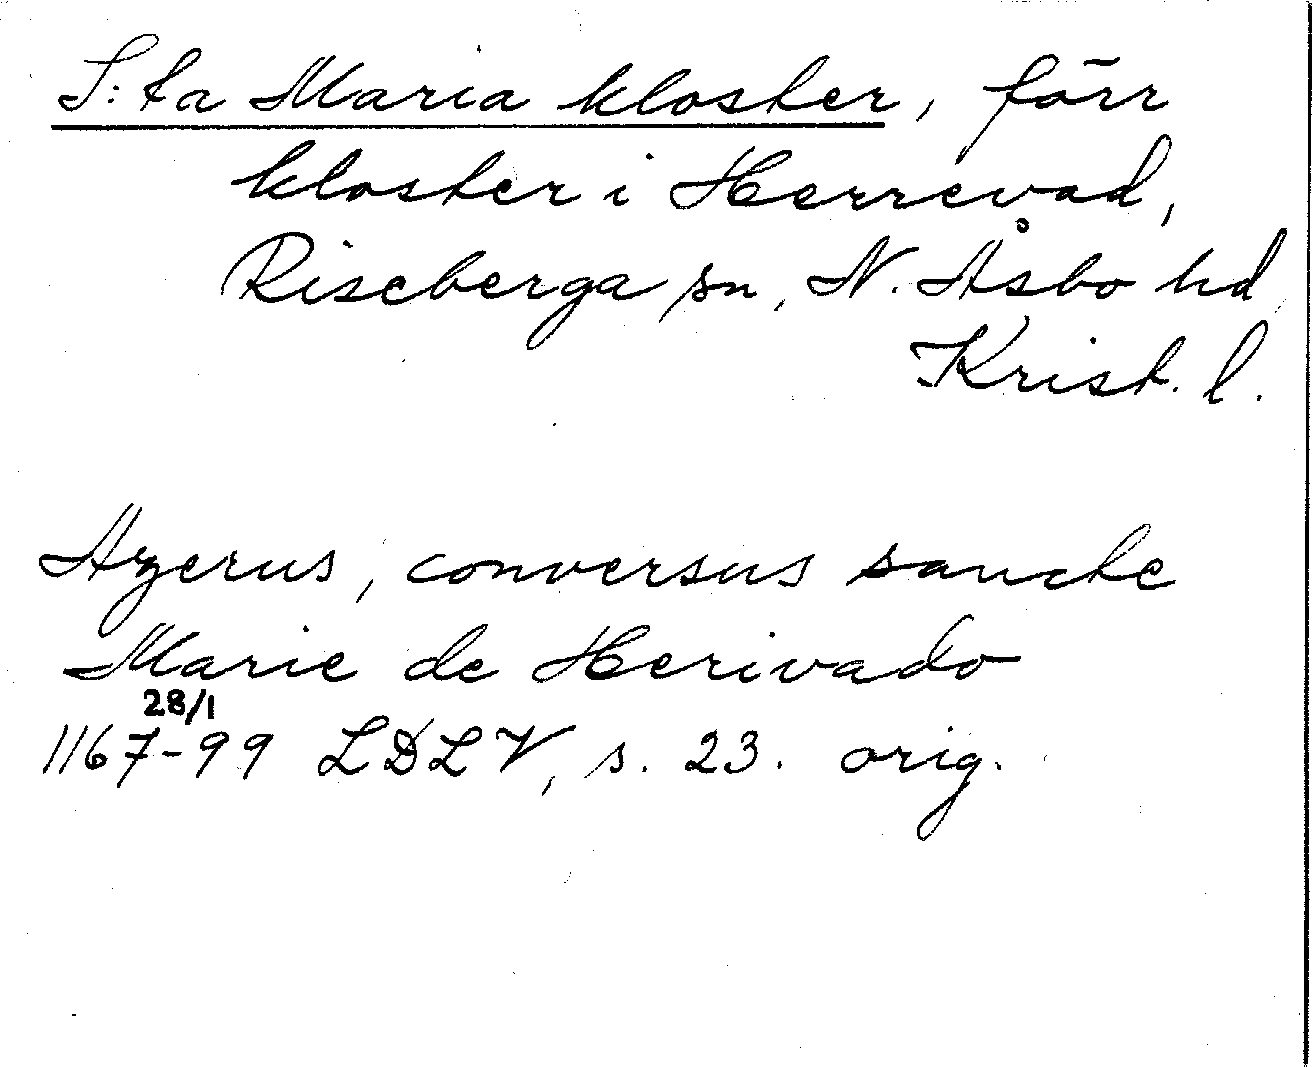 S:ta Maria kloster, förr
kloster i Herrevad,
Riseberga sn, N. Åsbo hd
Krist. l.
Azerus, conversus sancte
Marie de Herivado
28/1
1167-99 LDLV, s. 23. orig.